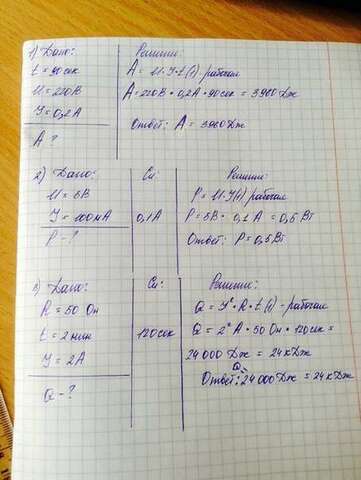 1) Дано:
t = 90 сек
U = 220 В
I = 0,2 А
А ?
Решение:
A = U · I · t (1) - рабочая
A = 220 В · 0,2 А · 90 сек = 3960 Дж
Ответ: А = 3960 Дж
2) Дано:
U = 5В
I = 100мА
P - ?
Си:
0,1А
Решение:
P = U · I (1) рабочая
P = 5В · 0,1 А = 0,5 Вт
Ответ: P = 0,5 Вт
3) Дано:
R = 50 Ом
t = 2 мин
I = 2А
Q - ?
Си:
120 сек
Решение:
Q = I² · R · t (1) - рабочая
Q = 2² А · 50 Ом · 120 сек =
24 000 Дж = 24 кДж
Ответ: Q = 24 000 Дж = 24 кДж